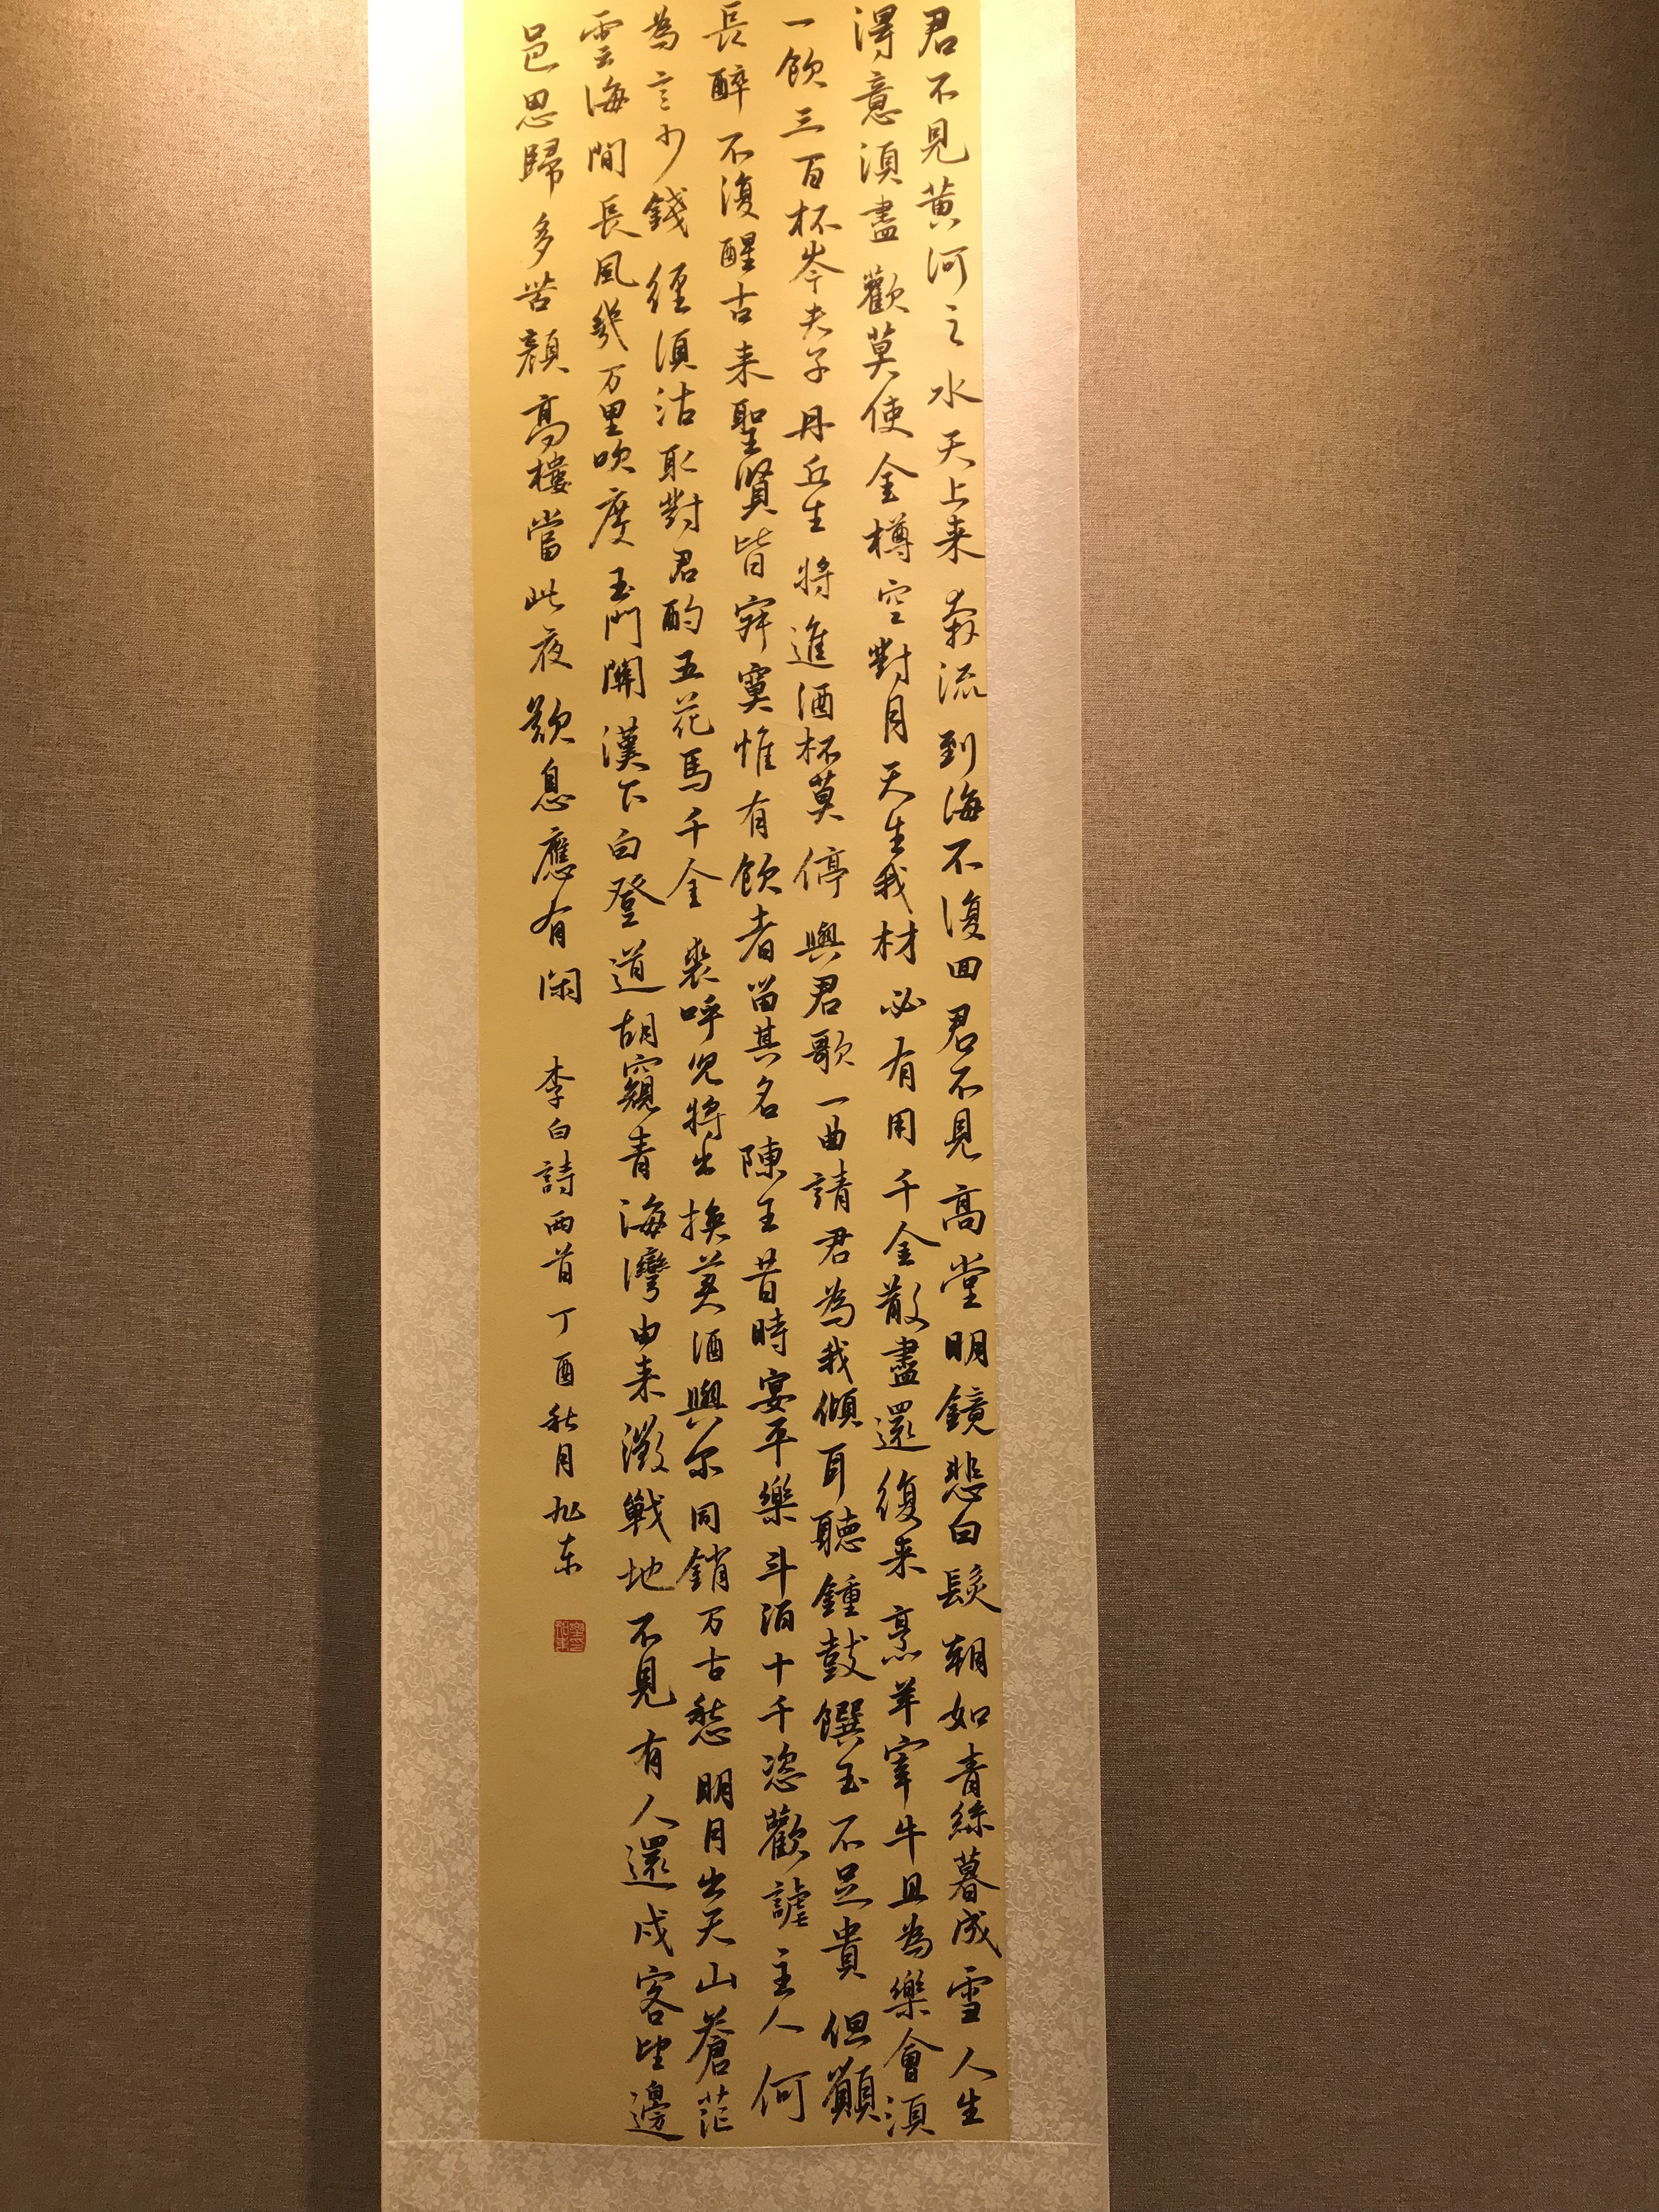 君不見黃河之水天上来奔流到海不復回君不見高堂明鏡悲白髮朝如青絲暮成雪人生
得意須盡歡莫使金樽空對月天生我材必有用千金散盡還復来烹羊宰牛且為樂會須
一飲三百杯岑夫子丹丘生將進酒杯莫停與君歌一曲請君為我傾耳聽鍾鼓饌玉不足貴但願
長醉不復醒古来聖賢皆寂寞惟有飲者留其名陳王昔時宴平樂斗酒十千恣歡謔主人何
為言少錢徑須沽取對君酌五花馬千金裘呼兒將出換美酒與尔同銷万古愁明月出天山蒼茫
雲海間長風幾万里吹度玉門關漢下白登道胡窺青海灣由来徵戰地不見有人還戍客望邊
邑思歸多苦顏高樓當此夜歎息應有閑 李白詩兩首丁酉秋月旭东